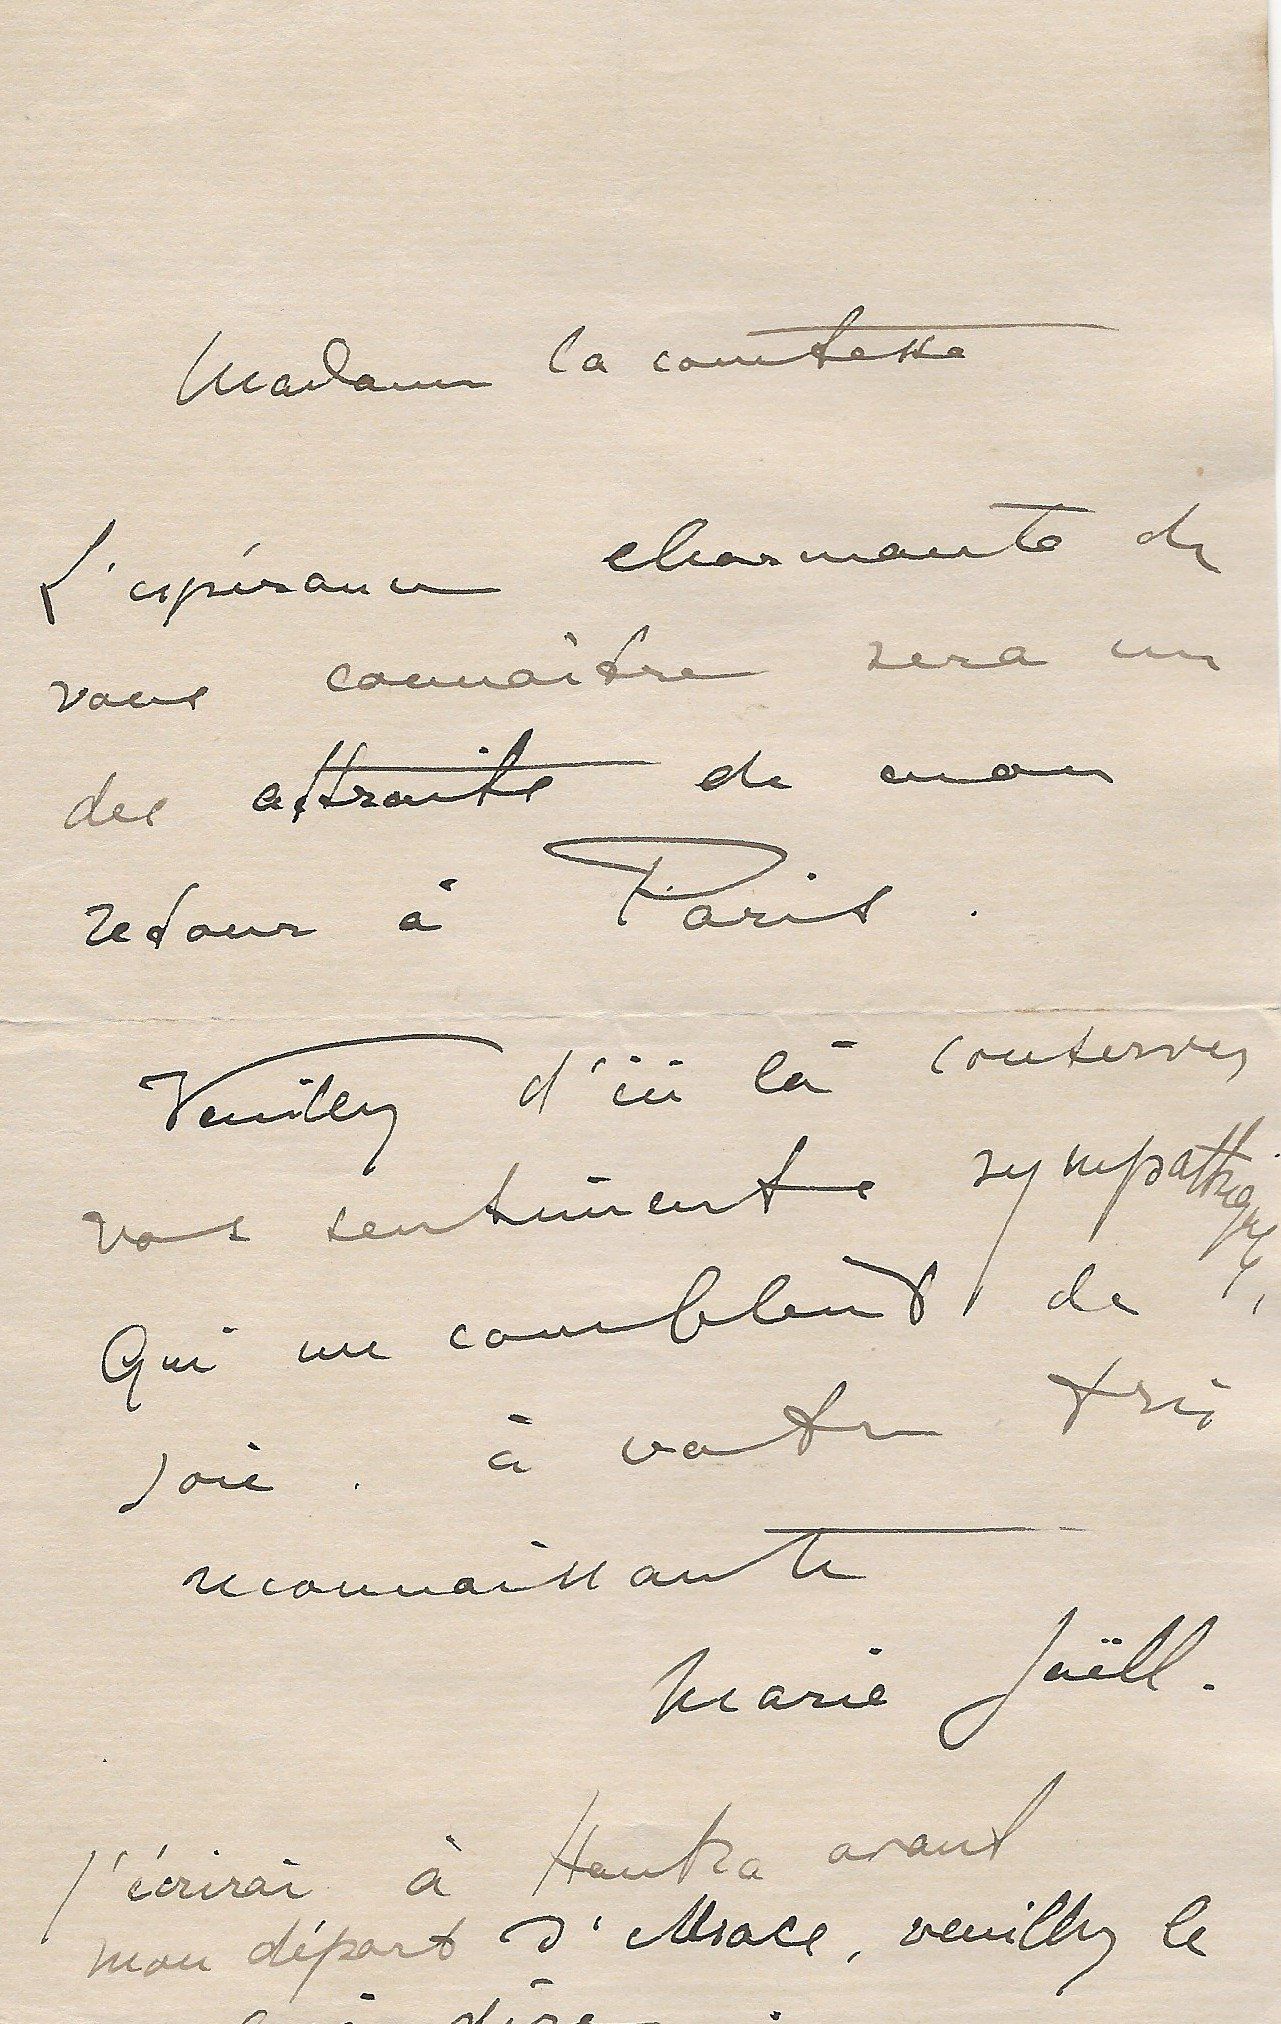 Madame la comtesse
L'espérance charmante de
vous connaître sera un
des attraits de mon
retour à Paris.
Veuillez d'ici là conserver
vos sentiments sympathiques,
qui me comblent de
joie. à votre très
reconnaissante
Marie Jaëll.
J'écrirai à avant
mon départ d'Alsace, veuillez le
lui dire